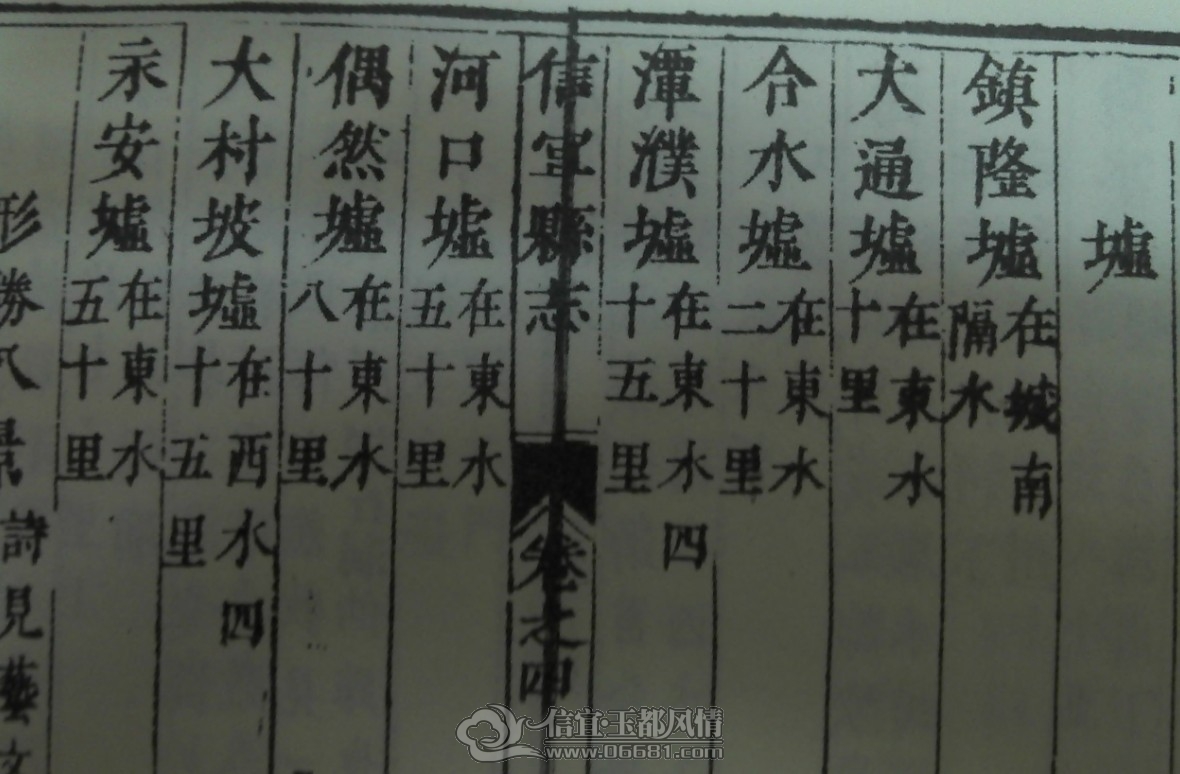 墟
鎮隆墟在城南隔水
大通墟在東水十里
合水墟在東水二十里
潭濮墟在東水四十五里
信宜縣志 卷之四
河口墟在東水五十里
偶然墟在東水八十里
大村坡墟在西水四十五里
永安墟在東水五十里
形勝八景詩見藝文
信宜·玉都风情
www.06681.com